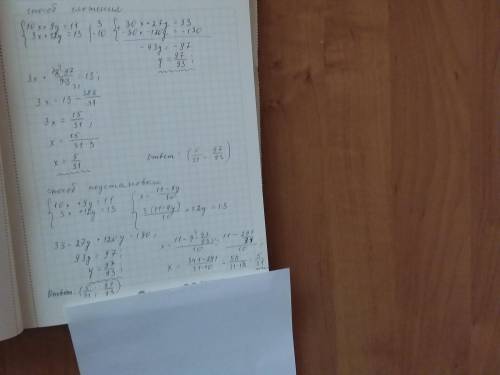 способ сложения
{10x + 9y = 11 | 3
{3x + 12y = 13 | -10
{30x + 27y = 33
{-30x - 120y = -130
-93y = -97
y = 97/93;
3x + 12·97/93 = 13;
3x = 13 - 388/31
3x = 15/31;
x = 15/31·3
x = 5/31
Ответ: (5/31; 97/93)
способ подстановки
{10x + 9y = 11
{3x + 12y = 13
{x = 11-9y/10
{3(11-9y)/10 + 12y = 13
33 - 27y + 120y = 130;
93y = 97;
y = 97/93;
x = 341-291/31·10 = 50/31·10 = 5/31
Ответ: (5/31; 97/93)